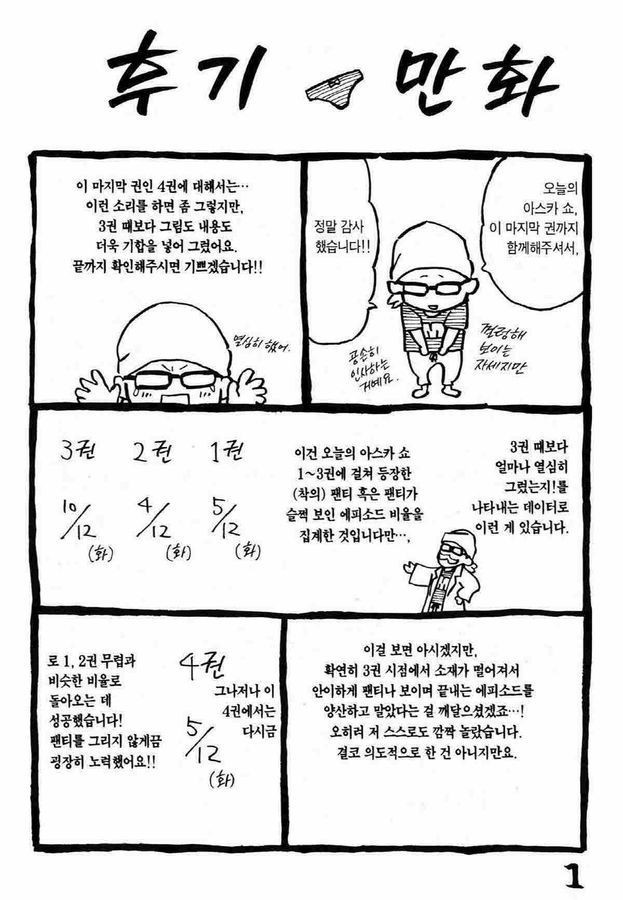 후기 만화
오늘의
아스카 쇼,
이 마지막 권까지
함께해주셔서,
정말 감사
했습니다!!
껄렁해
보이는
자세지만
공손히
인사하는
거예요.
이 마지막 권인 4권에 대해서는…
이런 소리를 하면 좀 그렇지만,
3권 때보다 그림도 내용도
더욱 기합을 넣어 그렸어요.
끝까지 확인해주시면 기쁘겠습니다!!
열심히 했어.
3권 때보다
얼마나 열심히
그렸는지!를
나타내는 데이터로
이런 게 있습니다.
이건 오늘의 아스카 쇼
1~3권에 걸쳐 등장한
(착의) 팬티 혹은 팬티가
슬쩍 보인 에피소드 비율을
집계한 것입니다만…,
1권
5/12
(화)
2권
4/12
(화)
3권
10/12
(화)
이걸 보면 아시겠지만,
확연히 3권 시점에서 소재가 떨어져서
안이하게 팬티나 보이며 끝내는 에피소드를
양산하고 말았다는 걸 깨달으셨겠죠…!
오히려 저 스스로도 깜짝 놀랐습니다.
결코 의도적으로 한 건 아니지만요.
그나저나 이
4권에서는
다시금
4권
5/12
(화)
로 1, 2권 무렵과
비슷한 비율로
돌아오는 데
성공했습니다!
팬티를 그리지 않게끔
굉장히 노력했어요!!
1